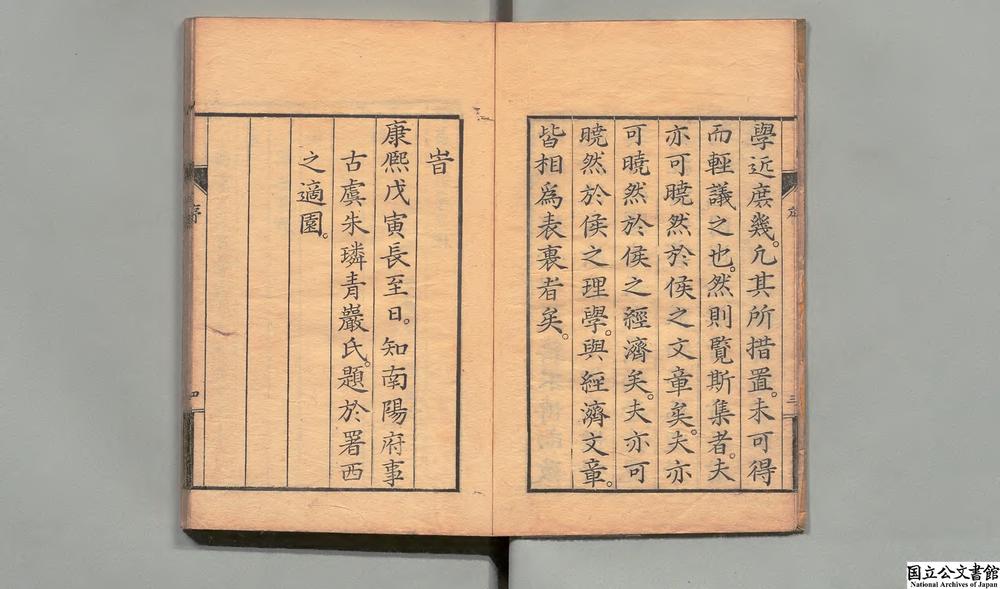 學近庶幾。凢其所措置。未可得
而輕議之也。然則覽斯集者。夫
亦可曉然於侯之文章矣。夫亦
可曉然於侯之經濟矣。夫亦可
曉然於侯之理學。與經濟文章。
皆相為表裏者矣。
旹
康熙戊寅長至日。知南陽府事
古虞朱璘青巖氏。題於署西
之適園。
序
三
四
国立公文書館
National Archives of Japan